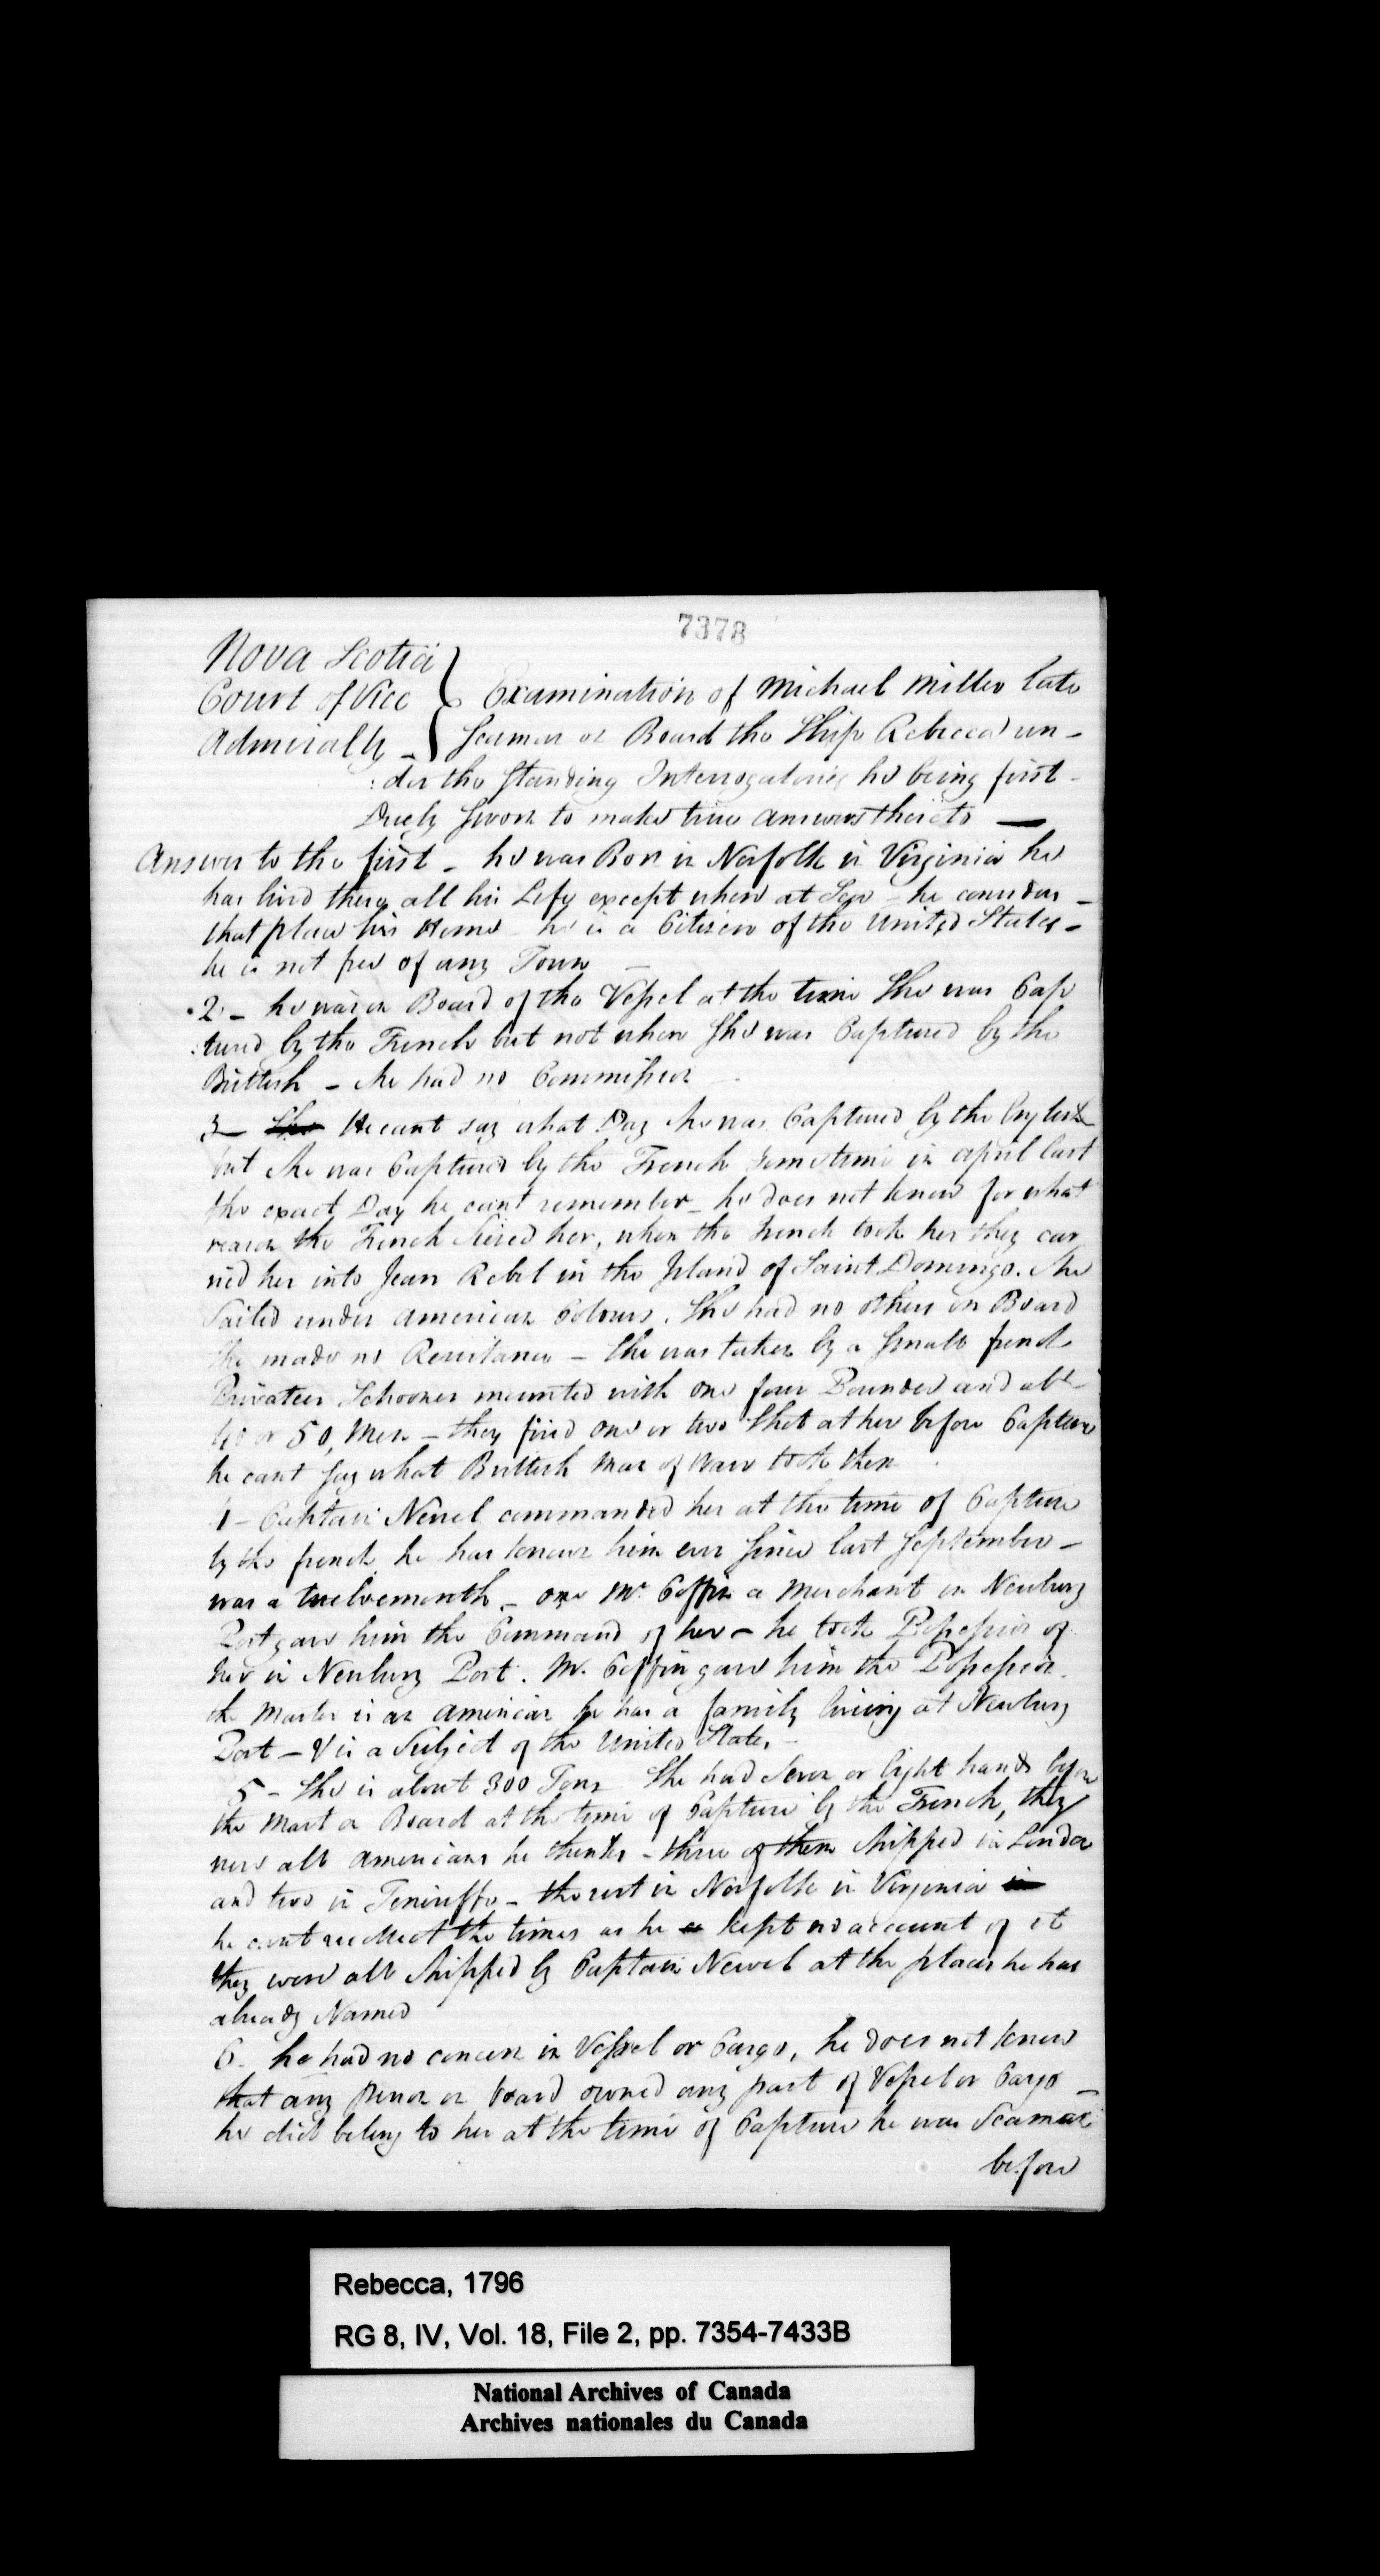 7378
Nova Scotia
Court of Vice
Admiralty
Examination of Michael Miller late
Seaman on Board the Ship Rebecca un-
:der the standing Interrogatories he being first
Duely Sworn to make true answers thereto —
Answer to the first - he was Born in Norfolk in Virginia he
has lived there all his Life except when at Sea - he considers
that place his Home he is a Citizen of the United States -
he is not free of any Town —
2 - he was on Board of the Vessel at the time She was Cap
:tured by the French but not when She was Captured by the
Brittish - she had no Commission
3 - She He cant say what Day she was Captured by the English
but she was Captured by the French sometime in april last
the exact Day he cant remember - he does not know for what
reason the French Seized her, when the French took her they car
ried her into Jean Rebel in the Island of Saint Domingo. She
Sailed under American Colours. She had no others on Board
She made no Resistance - She was taken by a Small french
Privateer Schooner mounted with one four Pounder and abt
40 or 50, Men - they fired one or two Shot at her before Capture
he cant Say what Brittish Man of Warr took them
4 - Captain Newel commanded her at the time of Capture
by the french he has known him ever Since last September -
was a twelvemonth - one Mr. Coffin a Merchant in Newbury
Port gave him the Command of her - he took Possession of
her in Newbury Port. Mr. Coffin gave him the Possession.
the Master is an American he has a family living at Newbury
Port - & is a Subject of the United States -
5 - She is about 300 Tons She had Seven or Eight hands before
the Mast on Board at the time of Capture by the French, they
were all Americans he thinks - three of them Shipped in London
and two in Teneriffe - the rest in Norfolk in Virginia in
he cant recollect the times as he kept no account of it
they were all Shipped by Captain Newel at the places he has
already Named
6 - he had no concern in Vessel or Cargo, he does not know
that any Person on board owned any part of Vessel or Cargo -
he did belong to her at the time of Capture he was Seaman
before
Rebecca, 1796
RG 8, IV, Vol. 18, File 2, pp. 7354-7433B
National Archives of Canada
Archives nationales du Canada